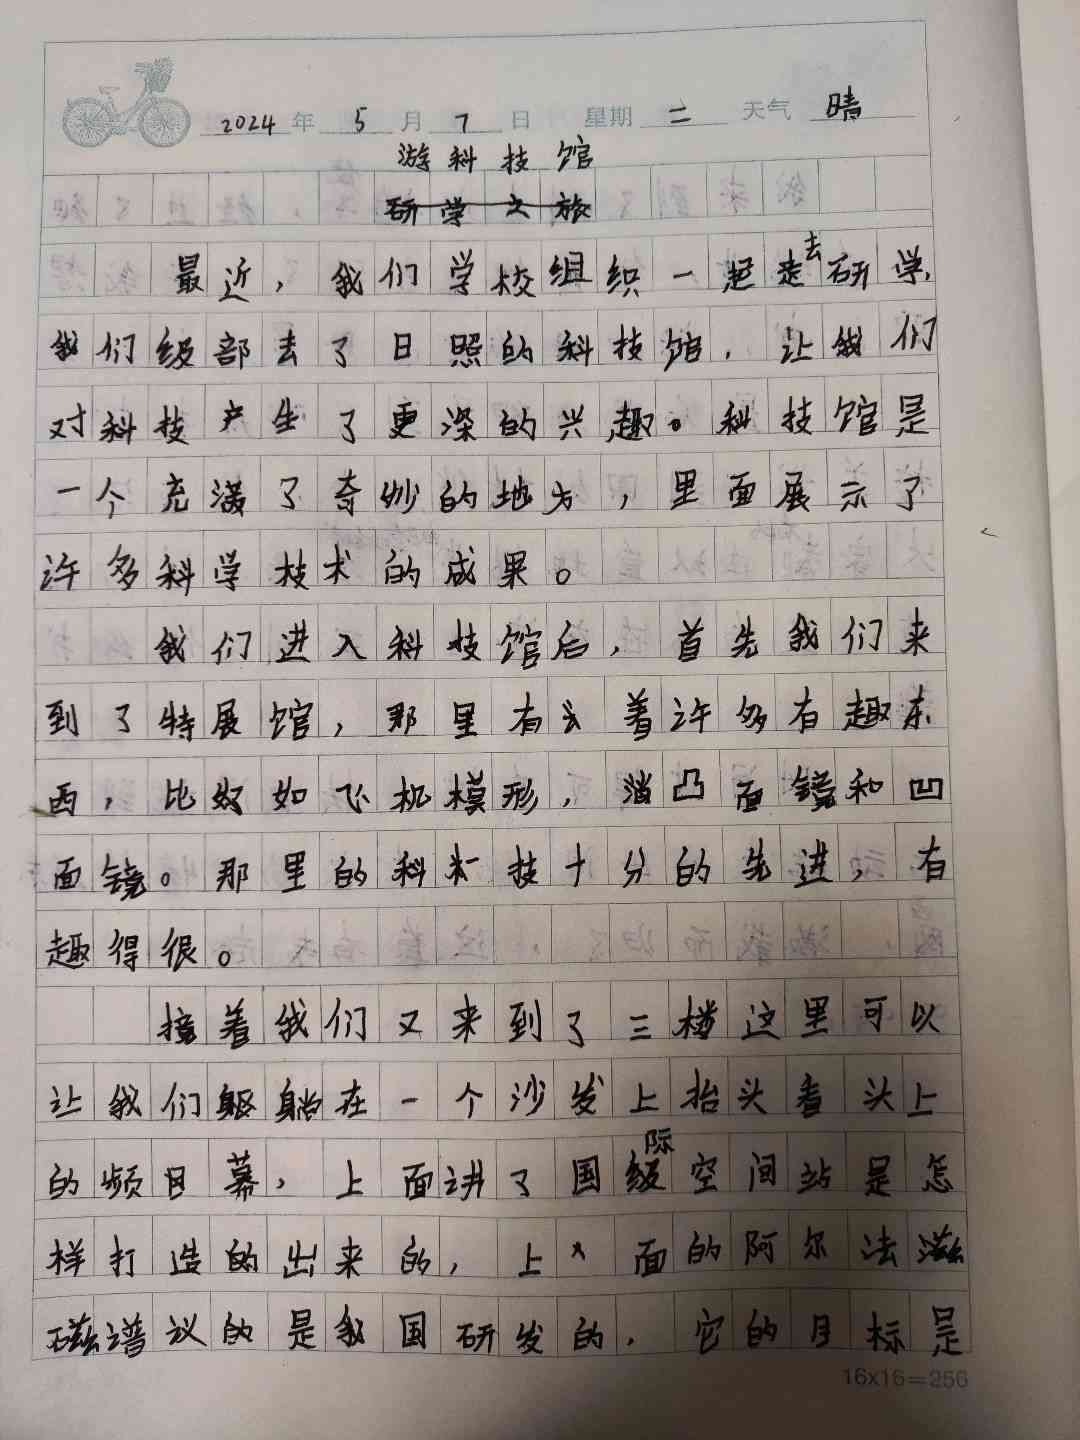 2024年 5月7日 星期二 天气 晴
游科技馆
研学之旅
最近，我们学校组织一起走去研学，
我们级部去了日照的科技馆，让我们
对科技产生了更深的兴趣。科技馆是
一个充满了奇妙的地方，里面展示了
许多科学技术的成果。
我们进入科技馆后，首先我们来
到了特展馆，那里有着许多有趣东
西，比好如飞机模形，凸面镜和凹
面镜。那里的科技十分的先进，有
趣得很。
接着我们又来到了三楼这里可以
让我们躺在一个沙发上抬头看头上
的频目幕，上面讲了国际级空间站是怎
样打造的出来的，上面的阿尔法
磁谱议的是我国研发的，它的目标是
16x16=256